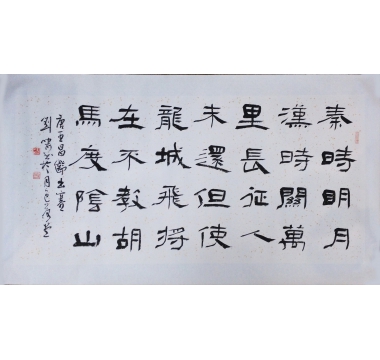 秦時明月
漢時關萬
里長征人
未還但使
龍城飛將
在不教胡
馬度陰山
唐王昌齡出塞
劉